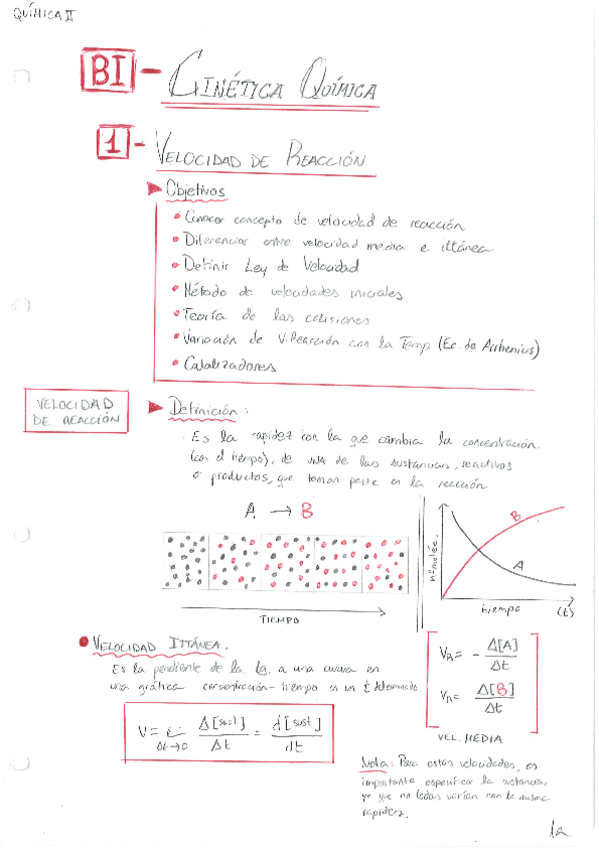 QUÍMICA II
BI - CINÉTICA QUÍMICA
1 - VELOCIDAD DE REACCIÓN
Objetivos
Conocer concepto de velocidad de reacción
Diferenciar entre velocidad media e ittánea
Definir Ley de Velocidad
Método de velocidades iniciales
Teoría de las colisiones
Variación de V.Reacción con la Temp (Ec. de Arrhenius)
Catalizadores
VELOCIDAD
DE REACCIÓN
Definición:
Es la rapidez con la que cambia la concentración
(con el tiempo), de una de las sustancias, reactivos
o productos, que toman parte en la reacción.
A → B
TIEMPO
nº moléc.
B
A
tiempo (t)
VELOCIDAD ITTÁNEA.
Es la pendiente de la tg. a una curva en
una gráfica concentración-tiempo en un t determinado.
V = Δt→0 Δ[sust]/Δt = d[sust]/dt
VR = - Δ[A]/Δt
VR = Δ[B]/Δt
VEL. MEDIA
Nota: Para estas velocidades, es
importante especificar la sustancia,
ya que no todas varían con la misma
rapidez.
1a